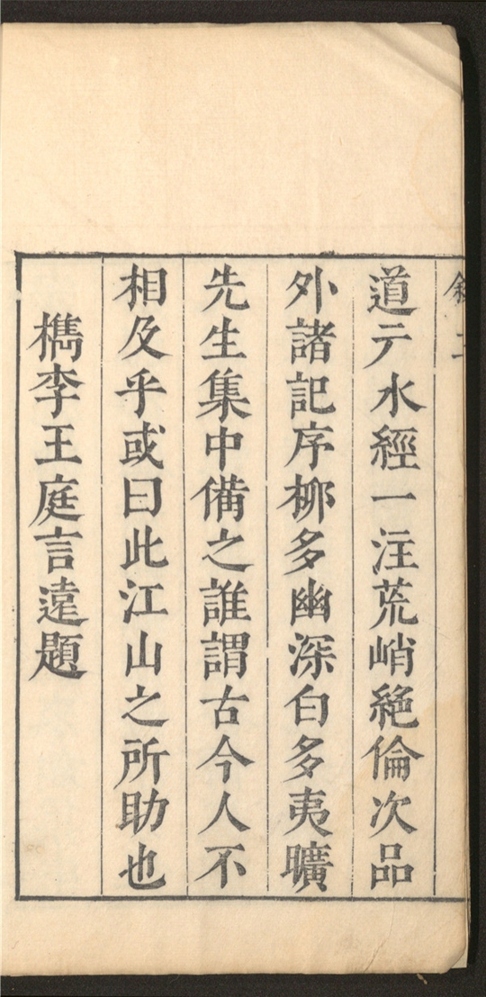 道元水經一注荒峭絶倫次品
外諸記序栁多幽深白多夷曠
先生集中備之誰謂古今人不
相及乎或曰此江山之所助也
檇李王庭言遠題